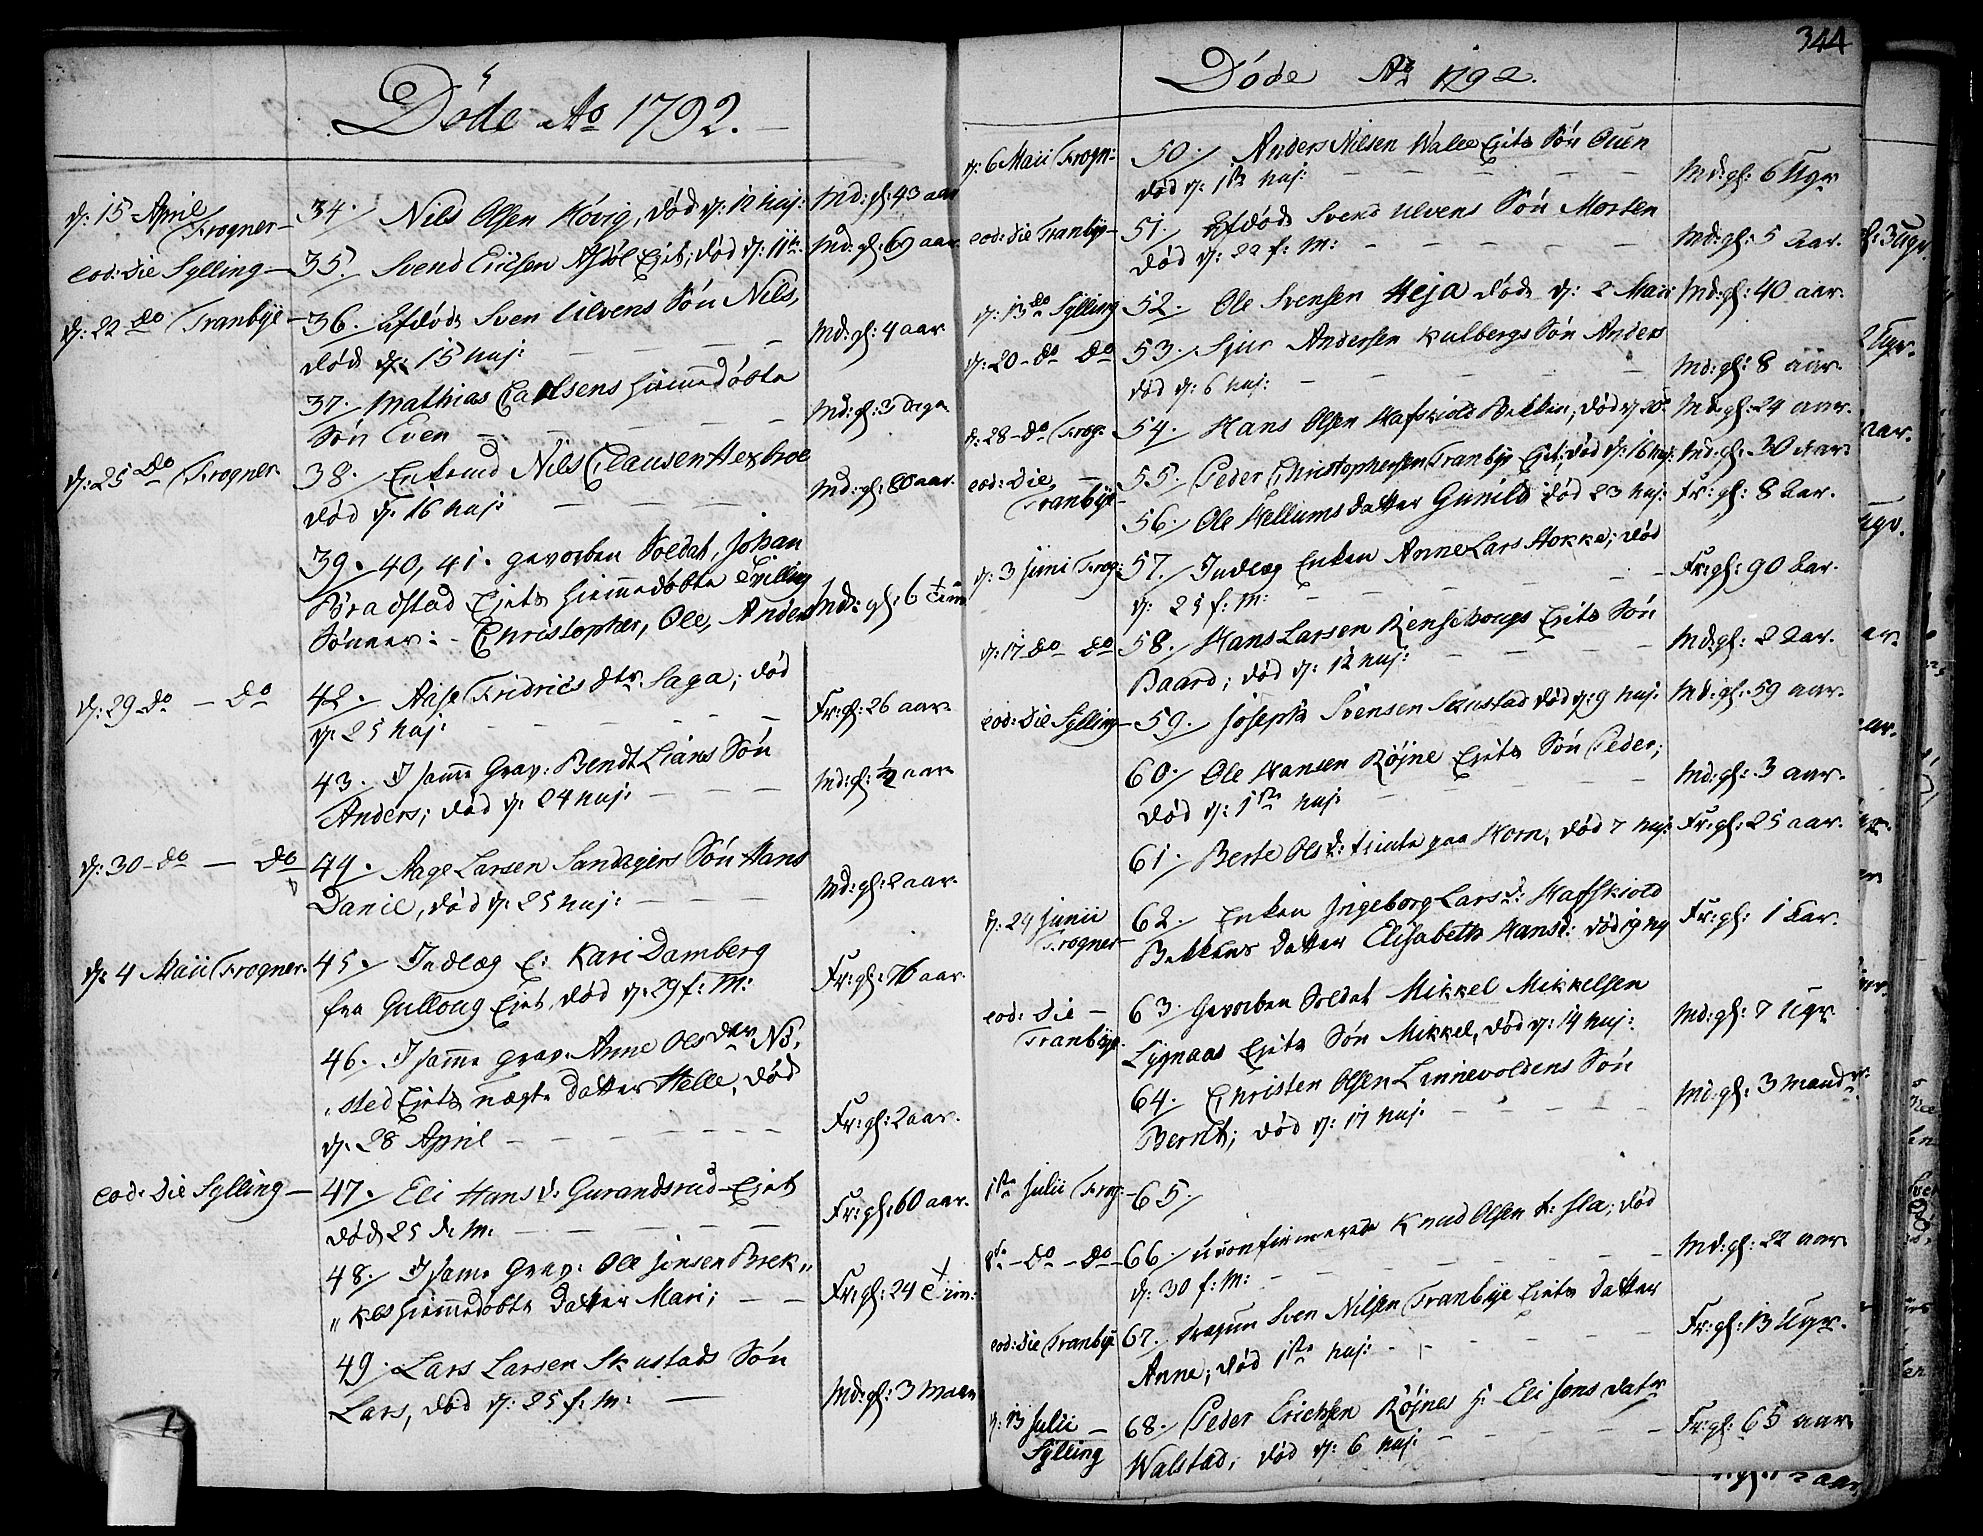 Døde Ao 1792.
d: 15 April Frogner — 34. Nils Olsen Kovig, død d: 12 huj: Md: gl: 43 aar
eod: die Sylling — 35. Svend Ericsen Ejet, død d: 11te Md: gl: 69 aar
d: 22 do Tranbye — 36. Afdøde Sven Ulvens Søn Nils,
død d: 15 huj: — — — Md: gl: 4 aar
37. Mathias Carlsens hiemmedøbte
Søn Even — — — Md: gl: 3 dage
d: 25 do Frogner. 38. Enkemd Nils Clausen
død d: 16 huj: — — — Md: gl: 80 aar.
39. 40, 41. gevorben Soldat, Johan
Bradstad Ejets hiemmedøbte Trilling
Sønner: - Christopher, Ole, Anders Md: gl: 6 Tim
d: 29 do — do 42. Aase Fridrics dtr. Saga; død
d: 25 huj: — — — Fr: gl: 26 aar.
43. I samme Grav: Bendt Lians Søn
Anders; død d: 24 huj: — — — Md: gl: 1/2 aar.
d: 30 - do — do 44. Aage Larsen Sandagers Søn Hans
Daniel, død d: 25 huj: — — — Md: gl: 2 aar.
d: 4 Maii Frogner. 45. Indlæg E: Kari Damberg
fra Gulloug Ejet, død d: 29 f: M: Fr: gl: 76 aar.
46. I samme grav. Anne Olsdter
sted Ejets nægte datter Helle, død
d: 28 April — — — Fr: gl: 2 aar.
eod: die Sylling — 47. Eli Hans d: Gurandsrud-Ejet
død 25 d. M. — — — Fr: gl: 60 aar.
48. I samme Grav: Ole Jensen Brek„
„kes hiemmedøbte datter Mari; — — Fr: gl: 24 Tim:
49. Lars Larsen Skustads Søn
Lars, død d: 25 f: M: — Md: gl: 3 Maan
344
Døde Ao 1792.
d: 6 Maii Frogn: 50. Anders Nilsen Walle Ejets Søn Ouen
død d: 1ste huj: — — — Md: gl: 6 Ugr
eod: die Tranby — 51. Afdøde Svend Ulvens Søn Morten
død d: 22 f: M: — — — Md: gl: 5 aar.
d: 13 do Sylling 52. Ole Svensen Heja døde d: 2 Maii Md: gl: 40 aar.
d: 20 - do do 53. Sjur Andersen Kulbergs Søn Anders
død d: 6 huj: — — — Md: gl: 8 aar.
d: 28 - do Frog: 54. Hans Olsen Hafskiold Bekken, død d 20 Md: gl: 24 aar.
eod: die — Tranbye — 55. Peder Christophersen Tranbye Ejet, død d: 16 huj: Md: gl: 30 aar.
56. Ole Hellums datter Gunild død 23 huj: Fr: gl: 8 aar.
d: 3 Juni Frog: 57. Indlæg Enken Anne Lars Hokke; død
d: 25 f: M: — — — Fr: gl: 90 aar.
d: 17 do do 58. Hans Larsen Ejets Søn
Baard; død d: 12 huj: — — — Md: gl: 2 aar.
eod: die Sylling — 59. Joseph Svensen Skustad død d: 9 huj: Md: gl: 59 aar.
60. Ole Hansen Røjne Ejets Søn Peder;
død d: 1ste huj: — — — Md: gl: 3 aar.
61. Berte Ols d: tiente paa Horn, død 7 huj: Fr: gl: 25 aar.
d: 24 Junii Frogner — 62. Enken Ingeborg Lars d: Haffskiold
Bekkens datter Elisabeth Hansd: død Fr: gl: 1 aar.
eod: die — Tranbye. 63. Gevorben Soldat Mikkel Mikkelsen
Lygnaas Ejets Søn Mikkel, død d: 14 huj: Md: gl: 7 Ugr
64. Christen Olsen Linnevoldens Søn
Bernt; død d: 17 huj: — — — Md: gl: 3 Maandr.
1ste Julii Frog — 65.
8de - do - do — 66. uconfirmerede Knud Olsen død
d: 30 f: M: — — — Md: gl: 22 aar
eod: die Tranbye 67. Dragun Sven Nilsen Tranbye Ejets datter
Anne; død 1ste huj: — — — Fr: gl: 13 Ugr.
d: 13 Julii — Sylling 68. Peder Erichsen Røjnes H: Eli Jens dater
Walstad; død d: 6 huj: — — — Fr: gl: 65 aar